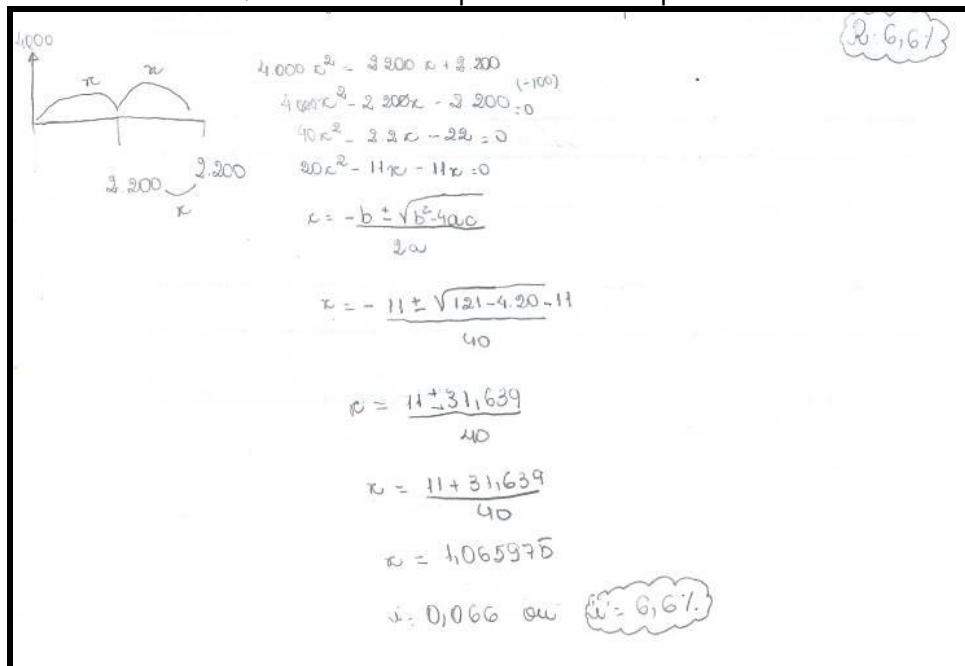 R: 6,6%
4.000
x x
2.200 2.200
x
4.000 x² = 2 200 x + 2.200
4 000x² - 2 200x - 2.200 = 0 (-100)
40x² - 22x - 22 = 0
20x² - 11x - 11x = 0
x = -b ± √b²-4ac
2a
x = - 11 ± √121-4.20-11
40
x = 11 ± 31,639
40
x = 11 + 31,639
40
x = 1,065975
i = 0,066 ou i = 6,6%